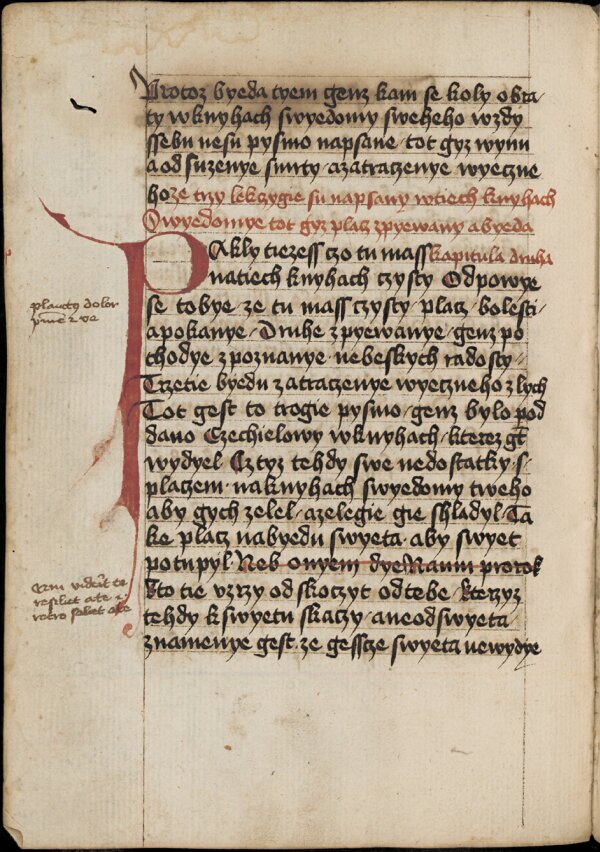 Protoz byeda tyem genz kam se koly obra/
ty wknyhach swyedomy sweheho wzdy
ssebu nesu pysmo napsane · tot gyz wynu
a od suzenye smrty · azatraczenye wyeczne
ho ze trzy lekczygie su napsany wtiech knyhach
Swyedomye tot gyz placz zpyewany abyeda
PAkly tiezess czo tu mass Kapitula druha
natiech knyhach czysty Odpowye
se tobye · ze tu mass czysty · placz · bolesti ·
apokanye · Druhe zpyewanye · genz po
chodye zpoznanye · nebeskych radosty ·
Trzetie byedu zatraczenye wyeczneho zlych
Tot gest to trogie pysmo · genz bylo pod
dano Ezechielowy wknyhach · kterez gt
wydyel · Cztyz tehdy swe nedostatky · s ·
placzem · naknyhach swyedomy tweho
aby gych zelel · azelegie gie shladyl · Ta
ke placz nabyedu swyeta · aby swyet
potupyl · Neb onyem dye Naum prorok
kto tie vzrzy odskoczyt odtebe · kterzyz
tehdy kswyetu skaczy · aneodswyeta ·
znamenye gest · ze gesscze swyeta newydye
planctus dolor